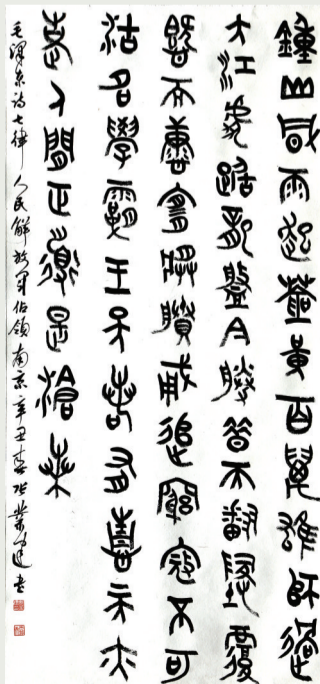 鍾山風雨起蒼黃百萬雄師過
大江虎踞龍盤今勝昔天翻地覆
慨而慷宜將賸勇追窮寇不可
沽名學霸王天若有情天亦
老人間正道是滄桑
毛澤東詩七律 人民解放軍佔領南京 辛丑春 書